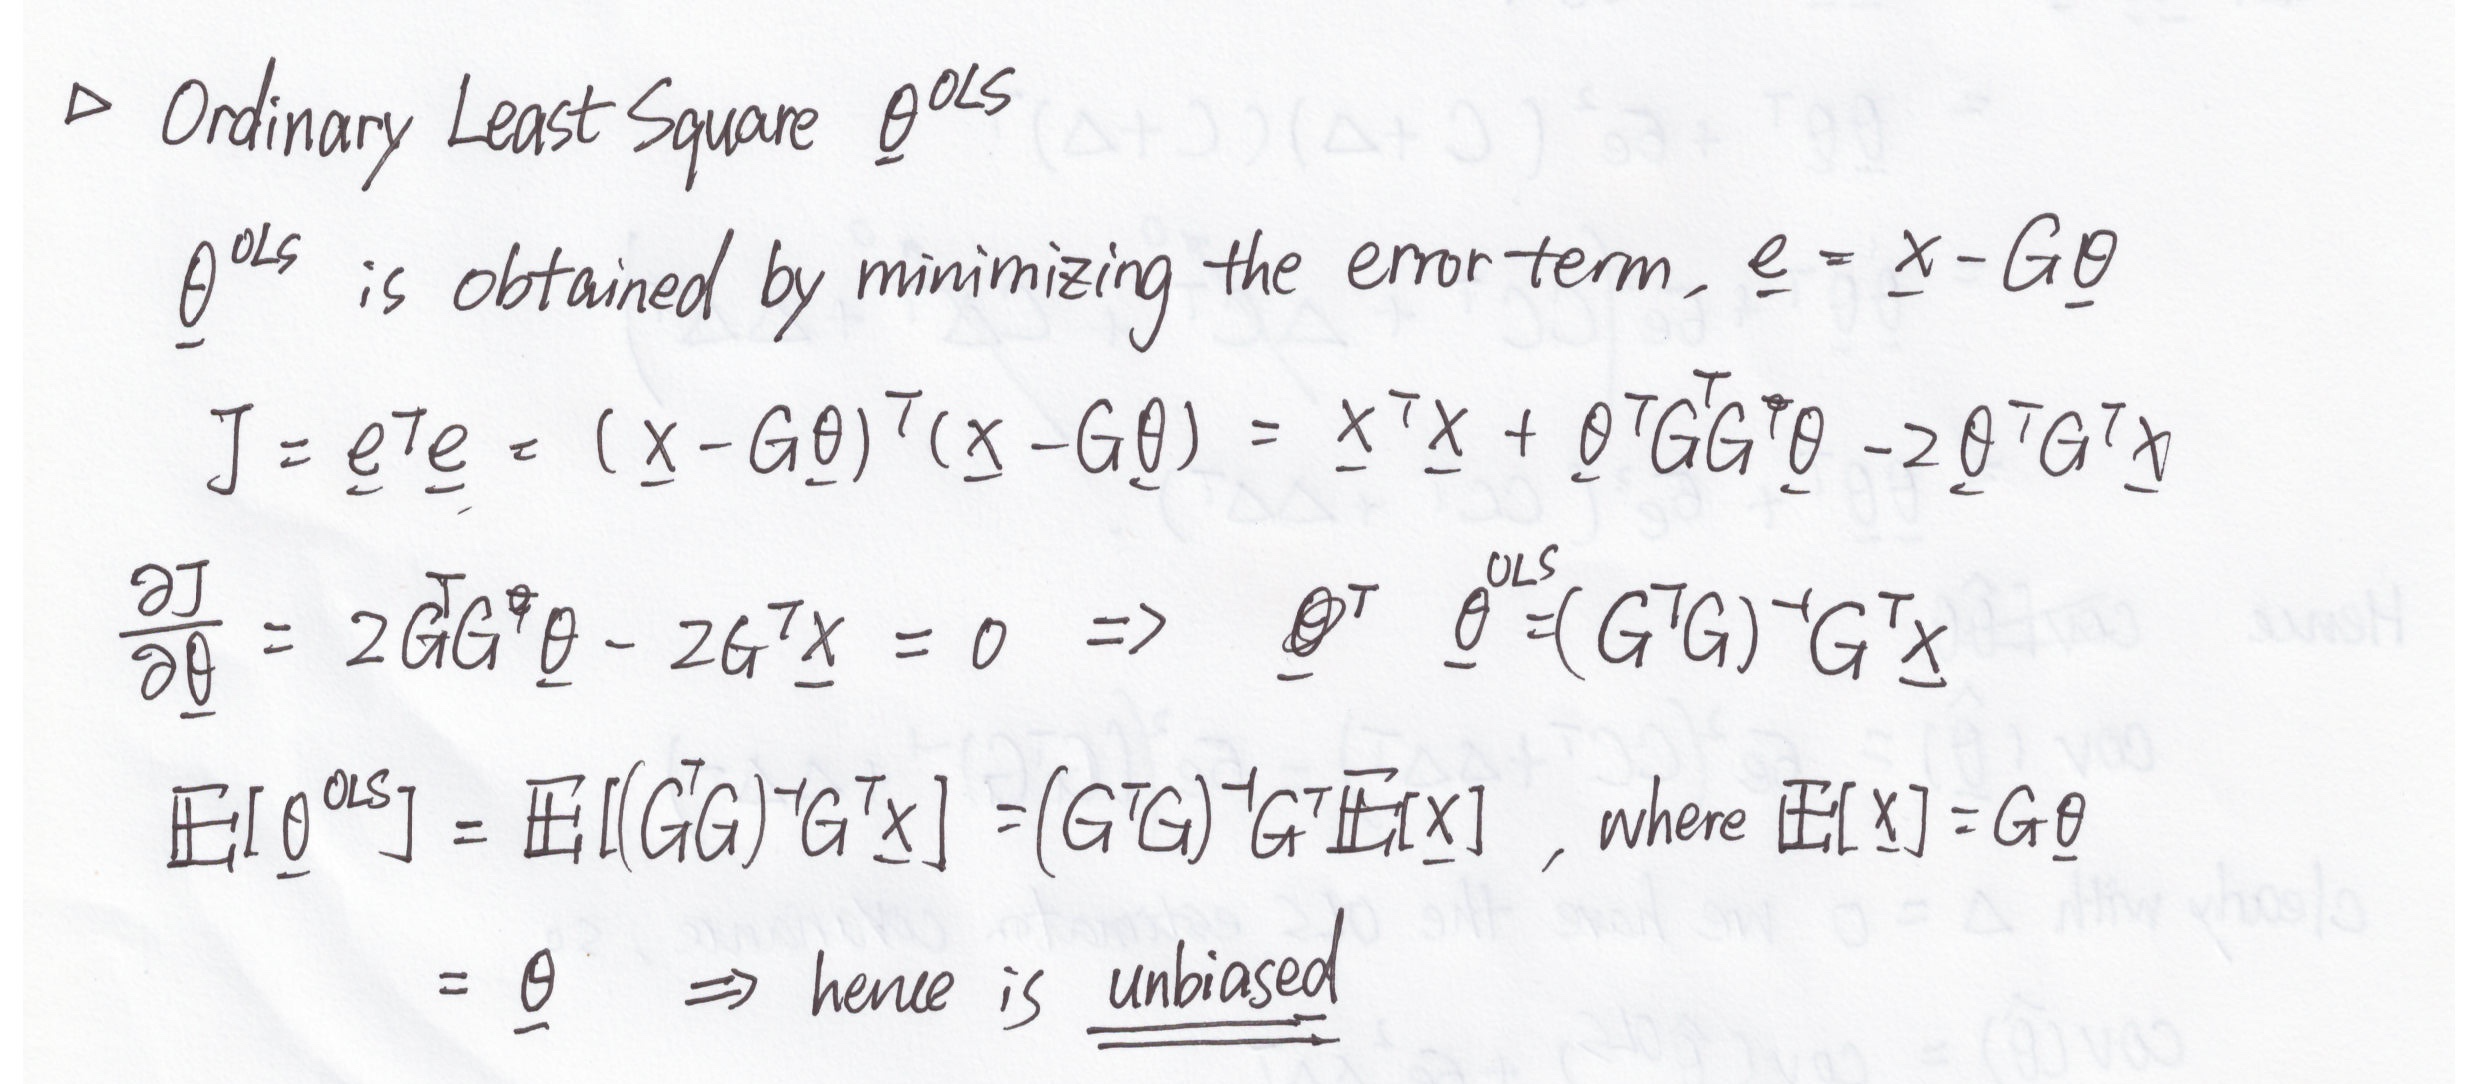 ▷ Ordinary Least Square θ̲^OLS
θ̲^OLS is obtained by minimizing the error term, e̲ = x̲ - Gθ̲
J = e̲ᵀe̲ = (x̲ - Gθ̲)ᵀ(x̲ - Gθ̲) = x̲ᵀx̲ + θ̲ᵀGᵀGθ̲ - 2θ̲ᵀGᵀx̲
∂J/∂θ̲ = 2GᵀGθ̲ - 2Gᵀx̲ = 0 => θ̲ᵀ θ̲^OLS = (GᵀG)⁻¹Gᵀx̲
𝔼[θ̲^OLS] = 𝔼[(GᵀG)⁻¹Gᵀx̲] = (GᵀG)⁻¹Gᵀ𝔼[x̲] , where 𝔼[x̲] = Gθ̲
= θ̲ => hence is unbiased